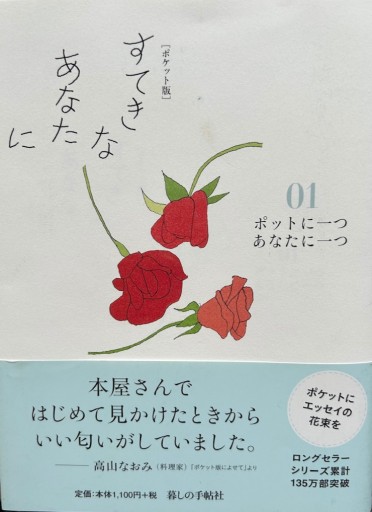 [ポケット版]
すてきな
あなた
に
01
ポットに一つ
あなたに一つ
本屋さんで
はじめて見かけたときから
いい匂いがしていました。
——高山なおみ(料理家)「ポケット版によせて」より
定価:本体1,100円+税 暮しの手帖社
ポケットに
エッセイの
花束を
ロングセラー
シリーズ累計
135万部突破